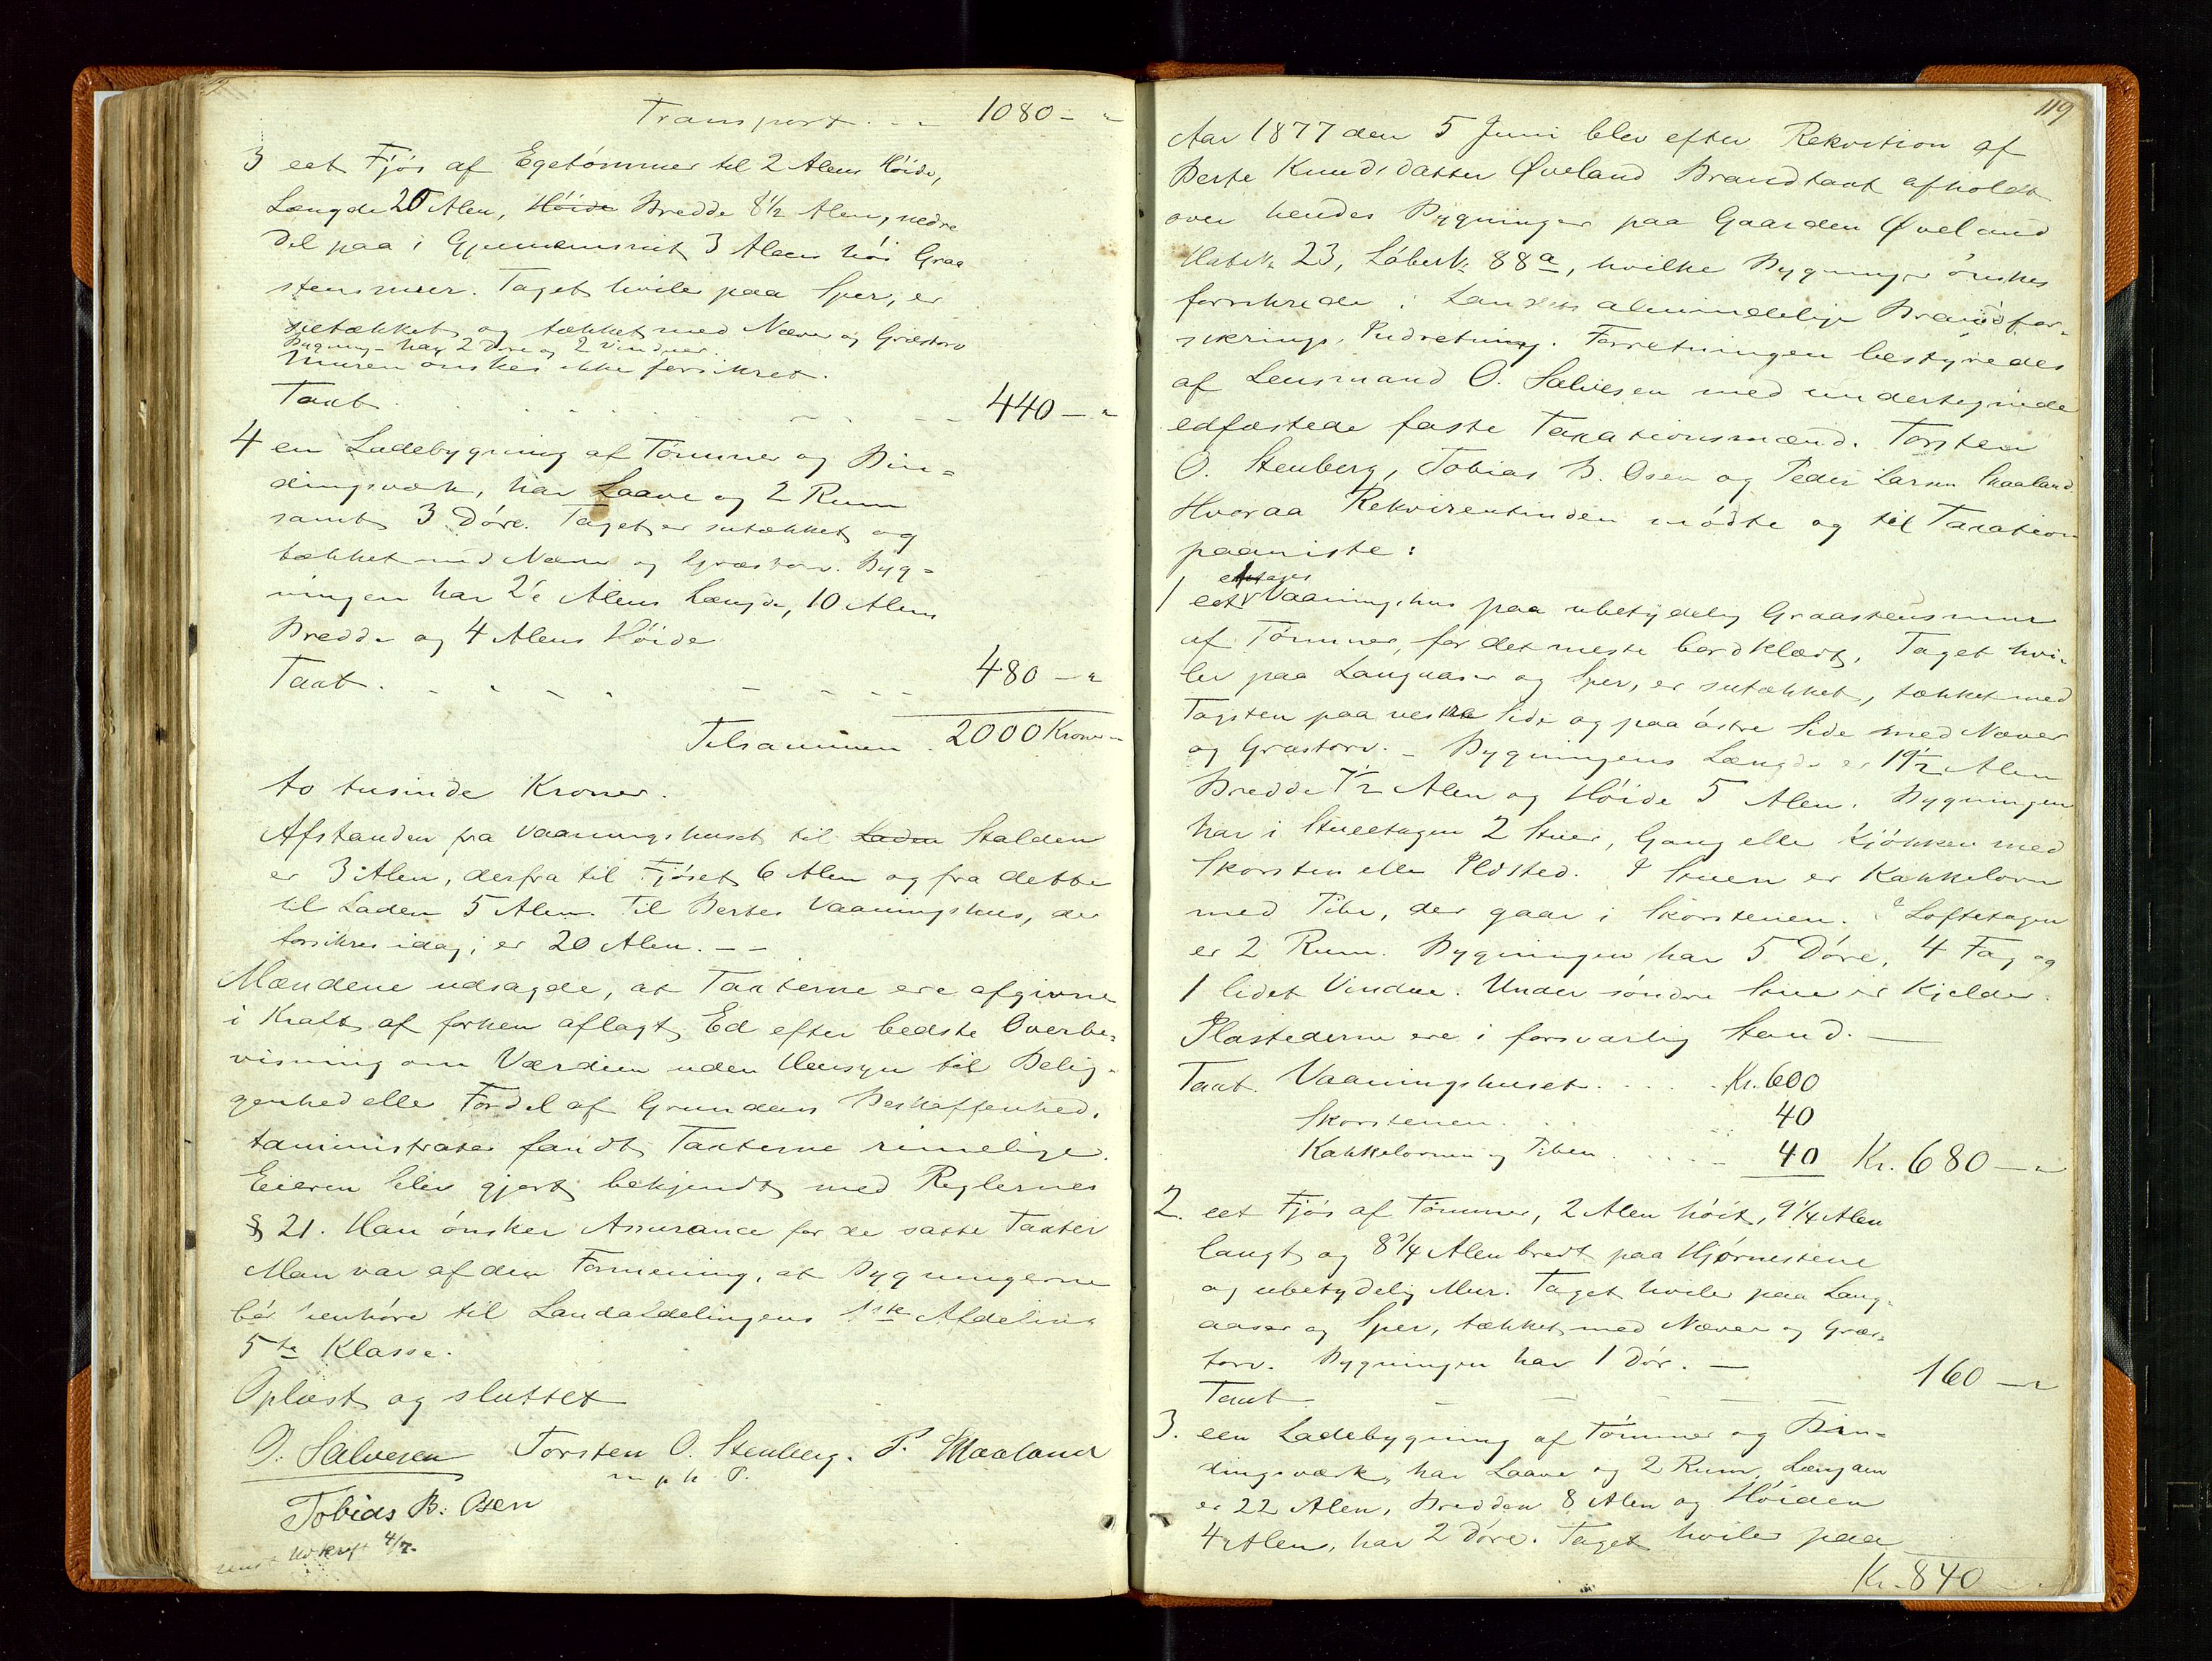 Transport . . - 1080 - "
3 eet Fjós af Egetómmer til 2 Alens Hóide,
Længde 20 Alen, Hóide Bredde 8 1/2 Alen, nedre
Del paa i Gjennemsnit 3 Alens hói Graa
stensmuer. Taget hviler paa Sper, er
sutækket og tækket med Næver og Græstorv
Bygning. har 2 Dóre og 2 Vinduer.
Muren ónskes ikke forsikret.
Taxt . . . . 440 - "
4 en Ladebygning af Tómmer og Bin=
dingsværk, har Laave og 2 Rum
samt 3 Dóre. Taget er sutækket og
tækket med Næver og Græstorv. Byg=
ningen har Alens Længde, 10 Alens
Bredde og 4 Alens Hóide
Taxt . . . . 480 - "
Tilsammen . 2000 Kroner
to tusinde Kroner.
Afstanden fra Vaaningshuset til Laden Stalden
er 3 Alen, derfra til Fjóset 6 Alen og fra dette
til Laden 5 Alen. Til Bertes Vaaningshus, der
forsikres idag, er 20 Alen. - -
Mændene udsagde, at Taxterne ere afgivne
i Kraft af forhen aflagt Ed efter bedste Overbe-
visning om Værdien uden Hensyn til Belig-
genhed eller Fordel af Grundens Beskaffenhed.
Administrator fandt Taxterne rimelige.
Eieren blev gjort bekjendt med Reglernes
§ 21. Han ónsker Assurance for de satte Taxter
Man var af den Formening, at Bygningerne
bór henhóre til Landafdelingens 1ste Afdeling
5te Klasse.
Oplæst og sluttet
O. Salvesen Torsten O. Stenberg. P. Skaaland
m p h. P.
Tobias B. Osen
Udskrift 4/7.
119
Aar 1877 den 5 Juni blev efter Rekvition af
Berte Knudsdatter Øveland Brandtaxt afholdt
over hendes Bygninger paa Gaarden Øveland
Matr№ 23, Lóbe№ 88a, hvilke Bygninger ónskes
forsikrede i Landets almindelige Brandfor-
sikrings-Indretning. Forretningen bestyredes
af Lensmand O. Salvesen med undertegnede
edfæstede faste Taxationsmænd. Torsten
O. Stenberg, Tobias B. Osen og Peder Larsen Skaaland.
Hvoraa Rekvirentinden mødte og til Taxation
paaviste:
etetages
1 eet Vaaningshus paa ubetydelig Graastensmur
af Tómmer, for det meste bordklædt, Taget hvi-
ler paa Langaaser og Sper, er sutækket, tækket med
Tagsten paa vestre Side og paa óstre Side med Næver
og Græstorv. - Bygningens Længde er 19 1/2 Alen
Bredde 7 1/2 Alen og Hóide 5 Alen. Bygningen
har i Stueetagen 2 Stuer, Gang eller Kjókken med
Skorsten eller Ildsted. I Stuen er Kakkelovn
med Pibe, der gaar i Skorstenen. I Loftetagen
er 2 Rum. Bygningen har 5 Dóre, 4 Fag og
1 lidet Vindue. Under sóndre Stue er Kjelder.
Ildstederne ere i forsvarlig Stand. —
Taxt. Vaaningshuset . . . . Kr. 600
Skorstenen . . . 40
Kakkelovnen og Piben . . . . 40 Kr. 680 - "
2. eet Fjós af Tómmer, 2 Alen hóit, 9 1/4 Alen
langt og 8 3/4 Alen bredt paa Hjørnestene
og ubetydelig Mur. Taget hviler paa Lang-
aaser og Sper, tækket med Næver og Græs-
torv. Bygningen har 1 Dór. —
Taxt - - - - 160 - "
3. een Ladebygning af Tómmer og Bin-
dingsværk, har Laave og 2 Rum, Længden
er 22 Alen, Bredden 8 Alen og Hóiden
4 Alen, har 2 Dóre. Taget hviler paa
Kr. 840 - "